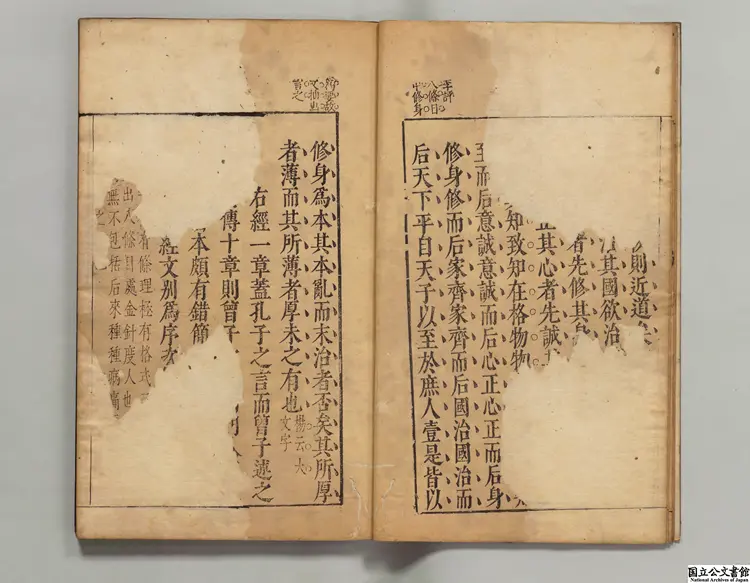 李評
八條目
中修身
則近道矣
其國欲治
者先修其
正其心者先誠
知致知在格物物
至而后意誠意誠而后心正心正而后身
修身修而后家齊家齊而后國治國治而
后天下平自天子以至於庶人壹是皆以
又抽出
言之
修身爲本其本亂而末治者否矣其所厚
者薄而其所薄者厚未之有也
文字
右經一章蓋孔子之言而曾子述之
傳十章則曾子
本頗有錯簡
經文別爲序次
有條理極有格式
出八條目處金針度人也
無不包括后來種種
之
国立公文書館
National Archives of Japan